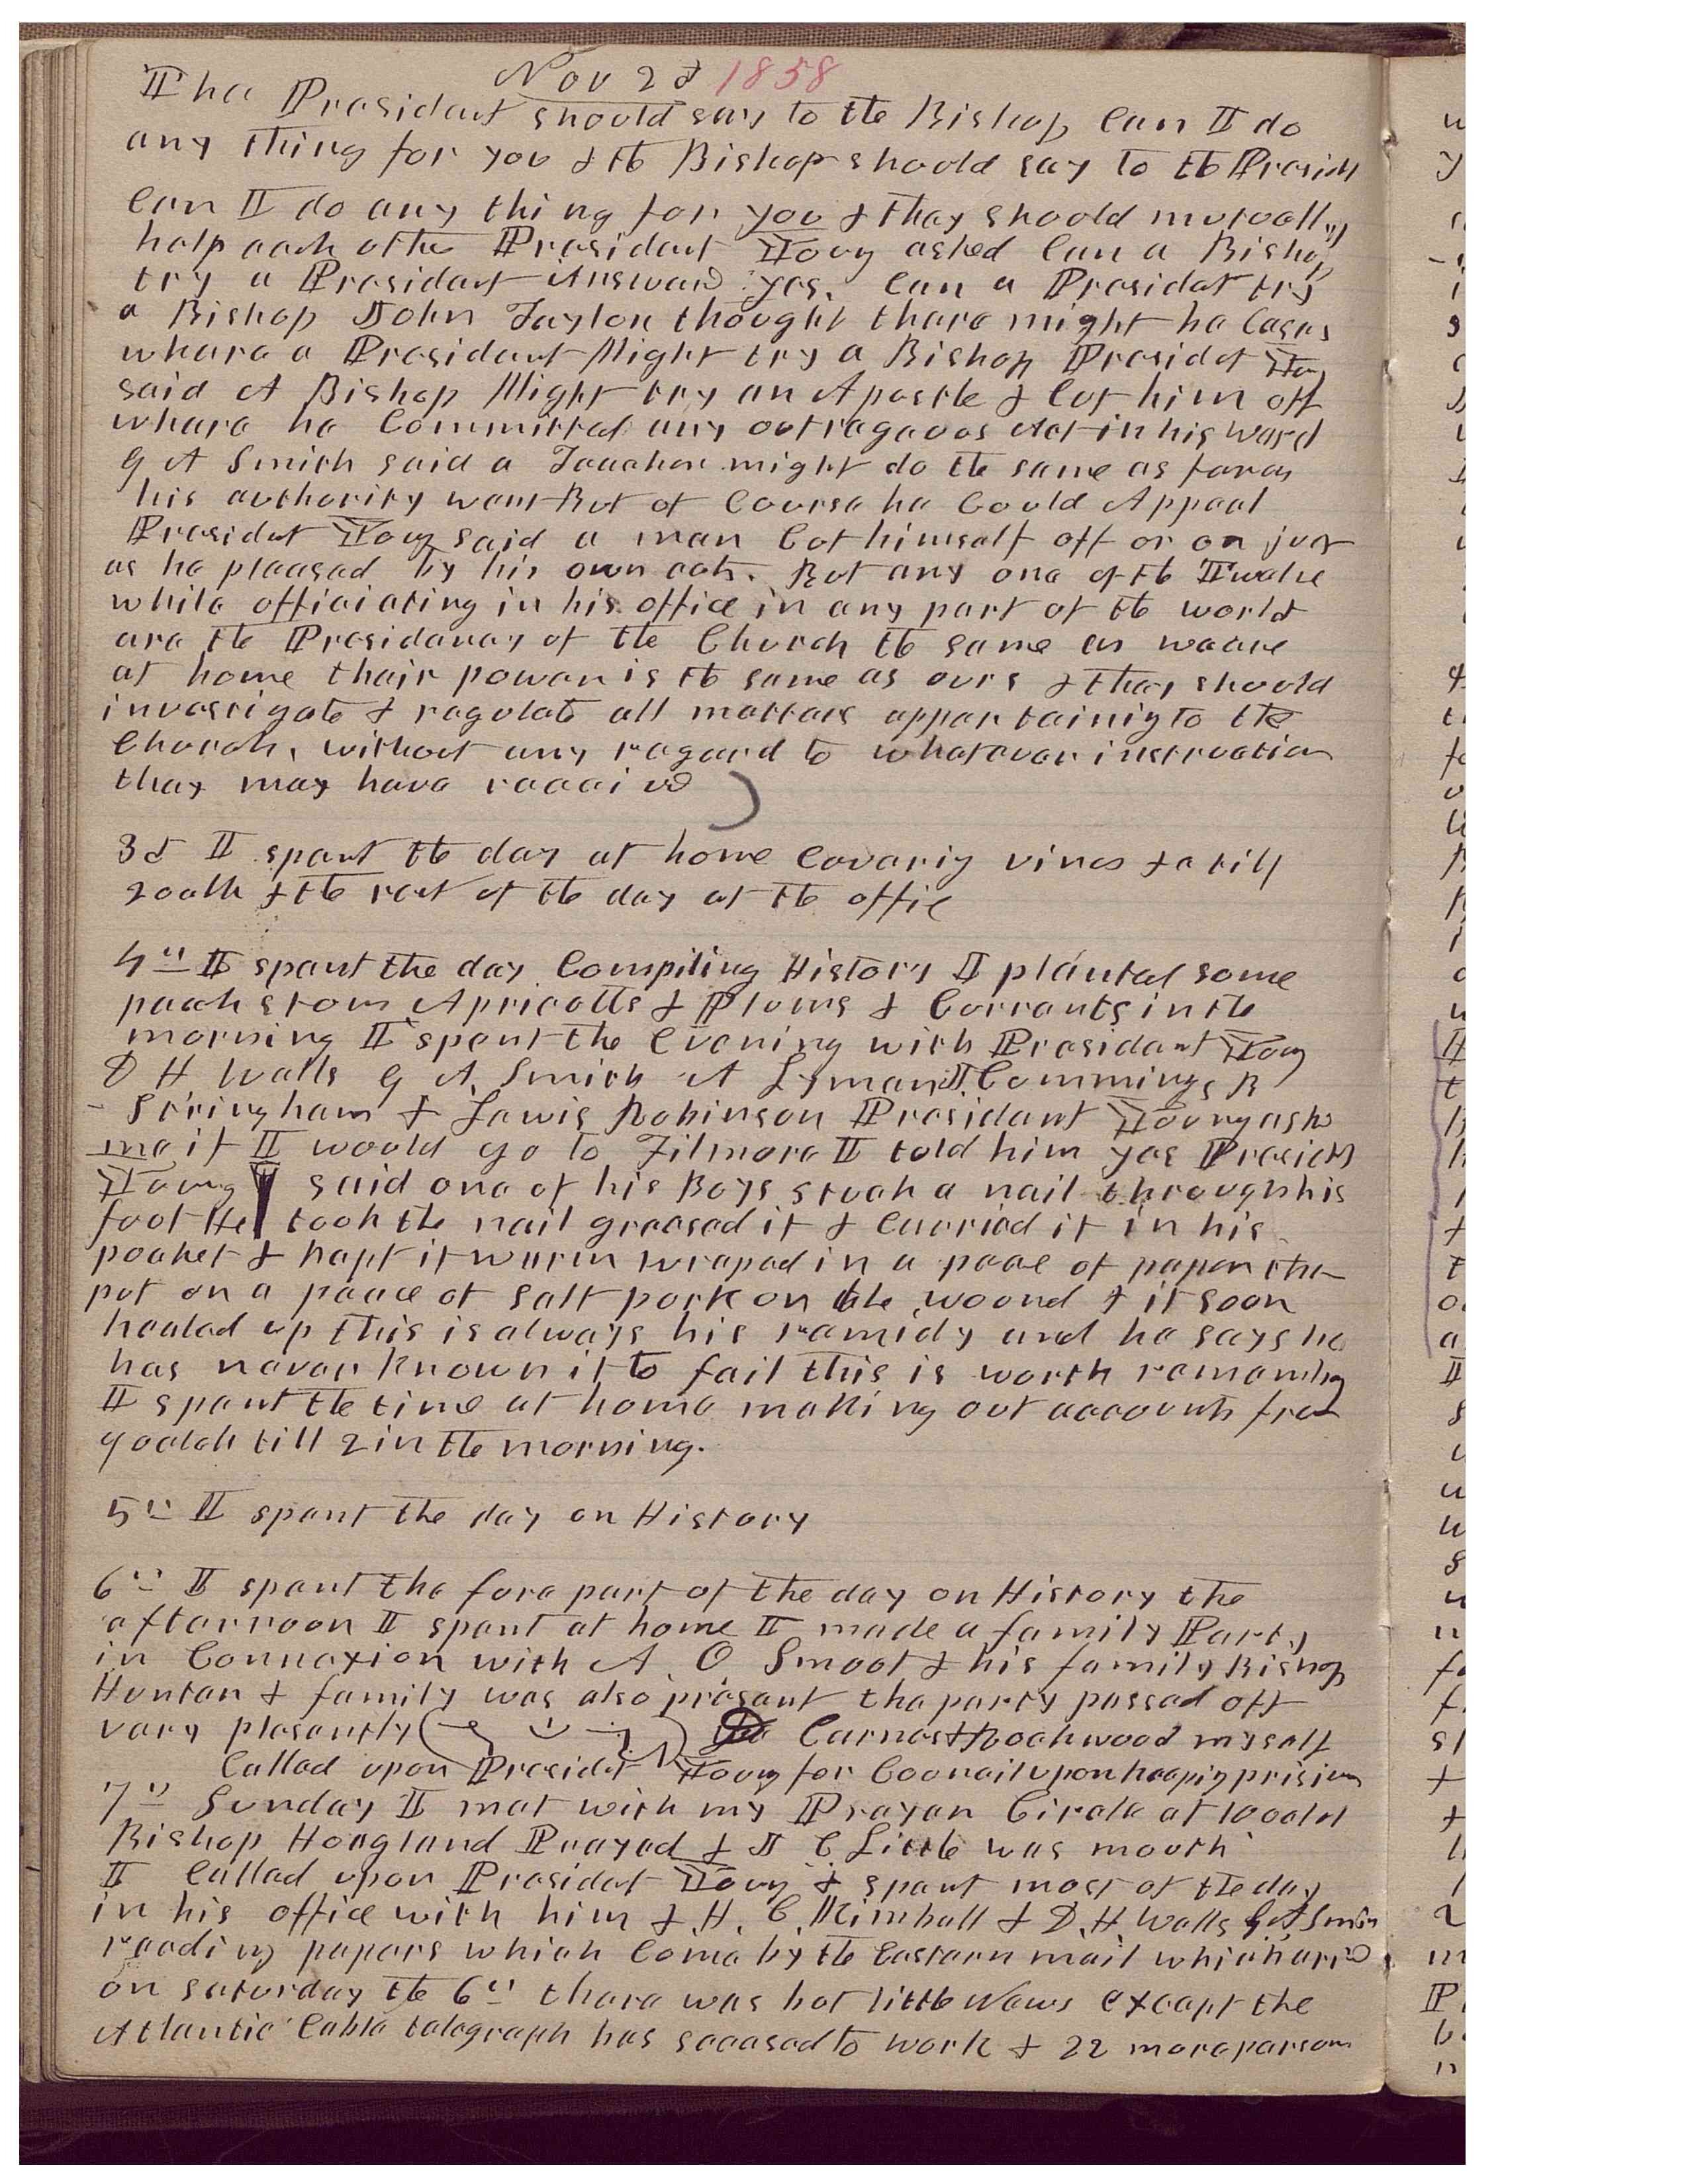 Nov 2d 1858
The President should say to the Bishop Can I do
any thing for you & the Bishop should say to the Presidet
Can I do any thing for you & they should mutually
help each other President Young asked Can a Bishop
try a President Answerd yes. Can a Presidet try
a Bishop John Taylor thought there might be Cases
where a President Might try a Bishop Presidet Young
said A Bishop Might try an Apostle & Cut him off
where he Committed any outrageous Act in his Ward
G A Smith said a Teacher might do the same as far as
his authority went But of Course he Could Appeal
Presidet Young said a man Cut himself off or on just
as he pleased by his own acts. But any one of the Twelve
while officiating in his office in any part of the world
are the Presidency of the Church the same as we are
at home their power is the same as ours & they should
investigate & regulate all matters appertainig to the
Church, without any regard to whatever instruction
they may have receivd
3d I spent the day at home Coverig vines &c till
2 oclk & the rest of the day at the offic
4th I spent the day Compiling History I planted some
peach stons Apricotts & Plums & Currants in the
morning I spent the Evening with President Young
D H Wells G A Smith A Lyman J Cummings B
Stringham & Lewis Robinson President Young askd
me if I would go to Filmore I told him yes Presidet
Young said one of his Boys stuck a nail through his
foot He took the nail greased it & Carried it in his
pocket & kept it warm wraped in a peace of paper then
put on a peace of salt pork on the wound & it soon
healed up this is always his remidy and he says he
has never known it to fail this is worth remembg
I spent the time at home making out accounts from
9 oclok till 2 in the morning.
5th I spent the day on History
6th I spent the fore part of the day on History the
afternoon I spent at home I made a family Party
in Connexion with A. O. Smoot & his family Bishop
Hunter & family was also present the party passed off
very plesantly Carnes & Rockwood myself
Called upon Presidet Young for Councilupon keepig prisions
7th Sunday I met with my Prayer Circle at 10 oclok
Bishop Hoagland Prayed & J C Little was mouth
I Called upon Presidet Young & spent most of the day
in his office with him & H. C. Kimball & D. H. Wells G A Smith
reading papers which Come by the Eastern mail which arivd
on saturday the 6th there was but little News except the
Atlantic Cable telegraph has seceased to work & 22 more persons